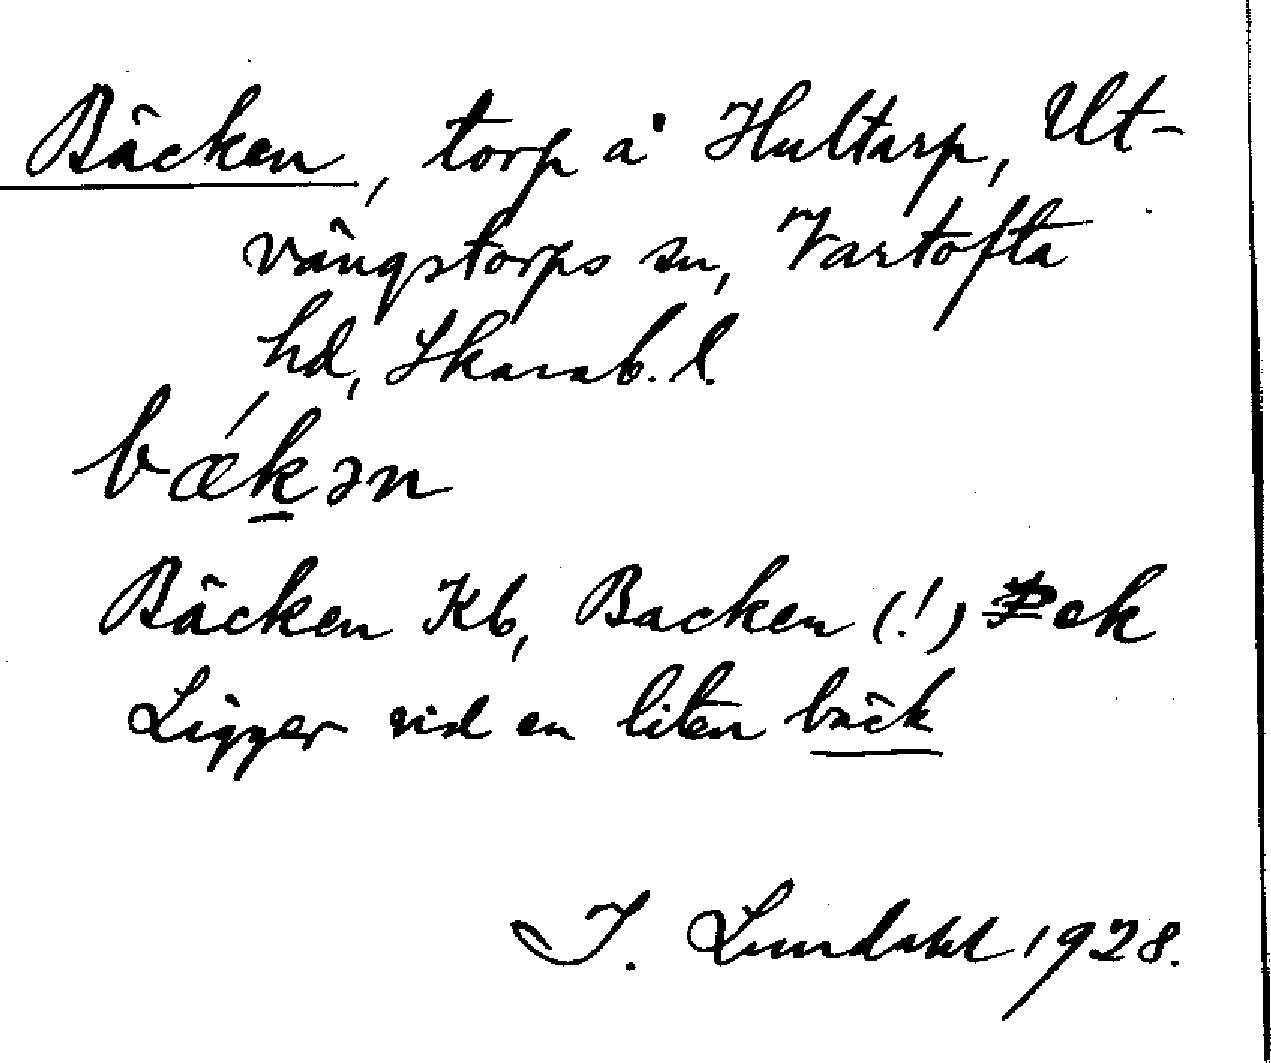 Bäcken, torp å Hultarp, Ut-
vängstorps sn, Vartofta
hd, Skarab. l.
bǽk̲ən
Bäcken Kb, Backen (!) ek
Ligger vid en liten bäck
I. Lundahl 1928.